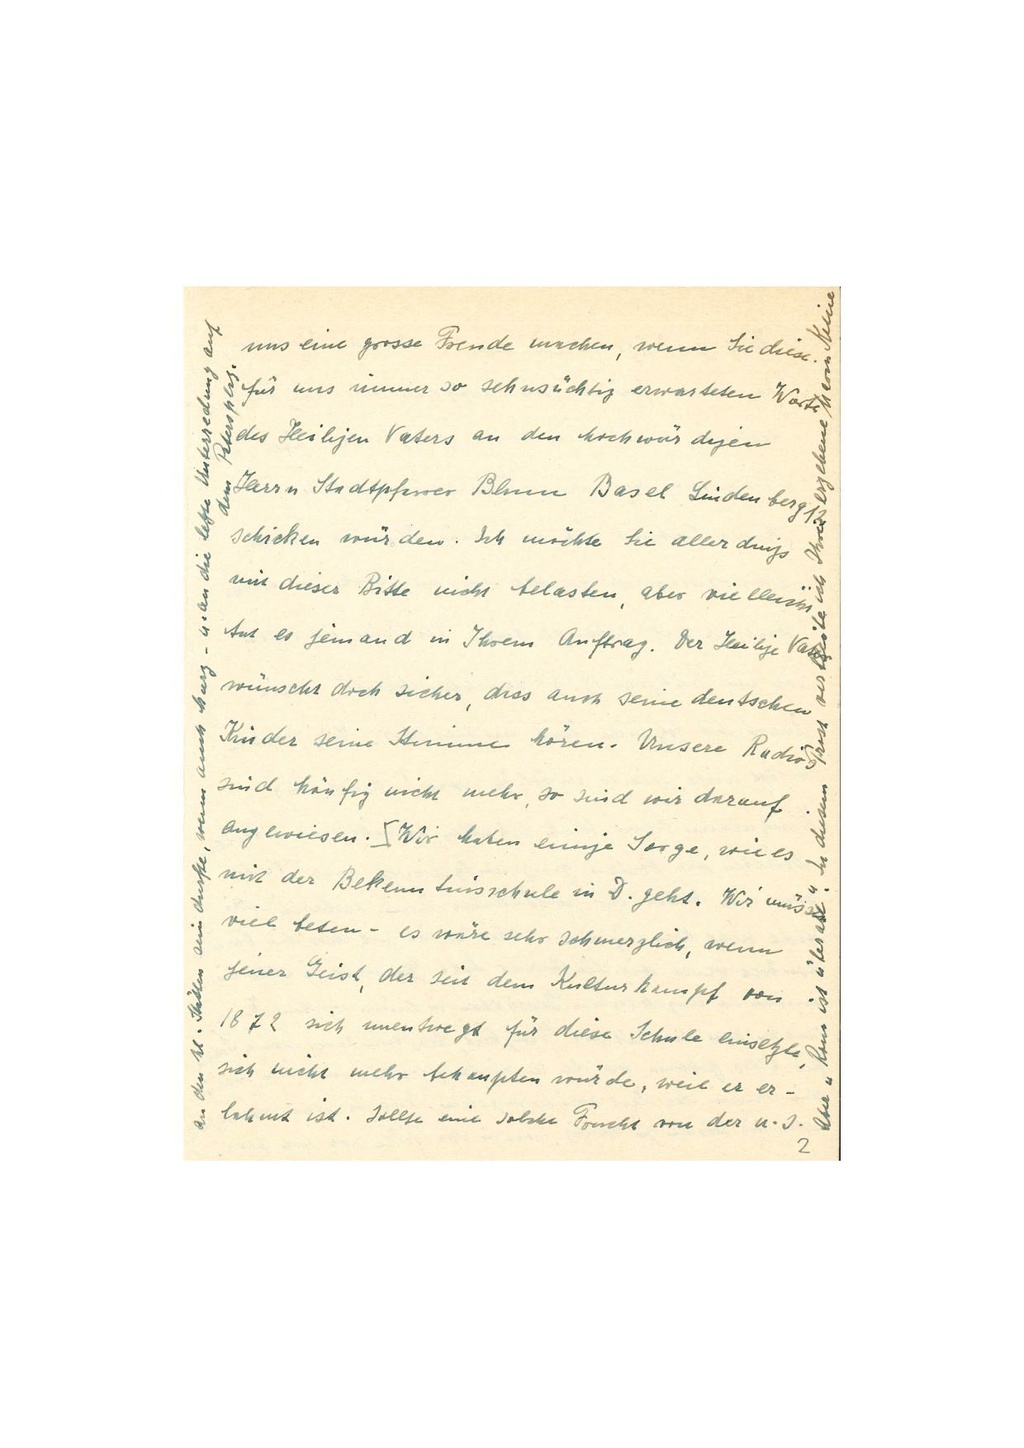 uns eine grosse Freude machen, wenn Sie diese
für uns immer so sehnsüchtig erwarteten Worte
des Heiligen Vaters an den hochwürdigen
Herrn Stadtpfarrer Blum Basel Lindenberg 12
schicken würden. Ich möchte Sie allerdings
mit dieser Bitte nicht belasten, aber vielleicht
tut es jemand in Ihrem Auftrag. Der Heilige Vater
wünscht doch sicher, dass auch seine deutschen
Kinder seine Stimme hören. Unsere Radios
sind häufig nicht mehr, so sind wir darauf
angewiesen. [Wir haben einige Sorge, wie es
mit der Bekenntnisschule in D. geht. Wir müssen
viel beten - es wäre sehr schmerzlich, wenn
jener Geist, der seit dem Kulturkampf von
1872 sich unentwegt für diese Schule einsetzte,
sich nicht mehr behaupten würde, weil er er-
lahmt ist. Sollte eine solche Frucht von der n.s.
2
an den hl. Stätten sein durfte, wenn auch kurz - u. an die letzte Unterredung auf
dem Petersplatz.
Aber "Rom ist überall". In diesem Trost verbleibe ich Ihre ergebene